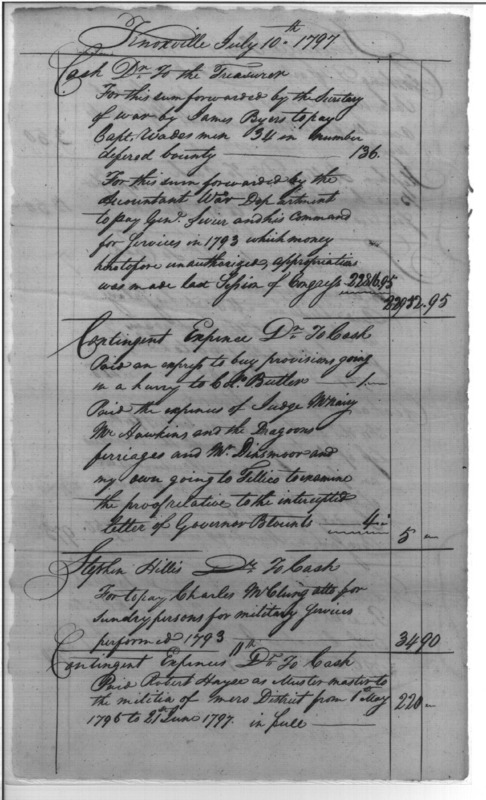 Knoxville July 10th 1797
Cash Dr. To the Treasurer
For this sum forwarded by the Secretary
of war by James Byers to pay
Capt. Wades men 34 in number
defered bounty 136.
For this sum forwarded by the
accountant War Department
to pay Genl. Sevier and his Command
for Services in 1793 which money
heretofore unauthorized, appropriation
was made last Session of Congress 22816.95
22952.95
Contingent Expence Dr. To Cash
Paid an express to buy provisions going
in a hurry to Col. Butler 1.
Paid the expences of Judge McNairy
Mr Hawkins and the Dragoons
ferriages and Mr. Dinsmoor and
my own going to Tellico to examine
the proof relative to the intercepted
letter of Governor Blounts 4.
5
Stephen Hillis Dr. To Cash
For to pay Charles McClung atto for
Sundry persons for military Services
performed 1793 3490
11th
Contingent Expences Dr. To Cash
Paid Robert Hayes as Muster master to
the militia of mero District from 1st May
1796 to 21st June 1797. in full 220